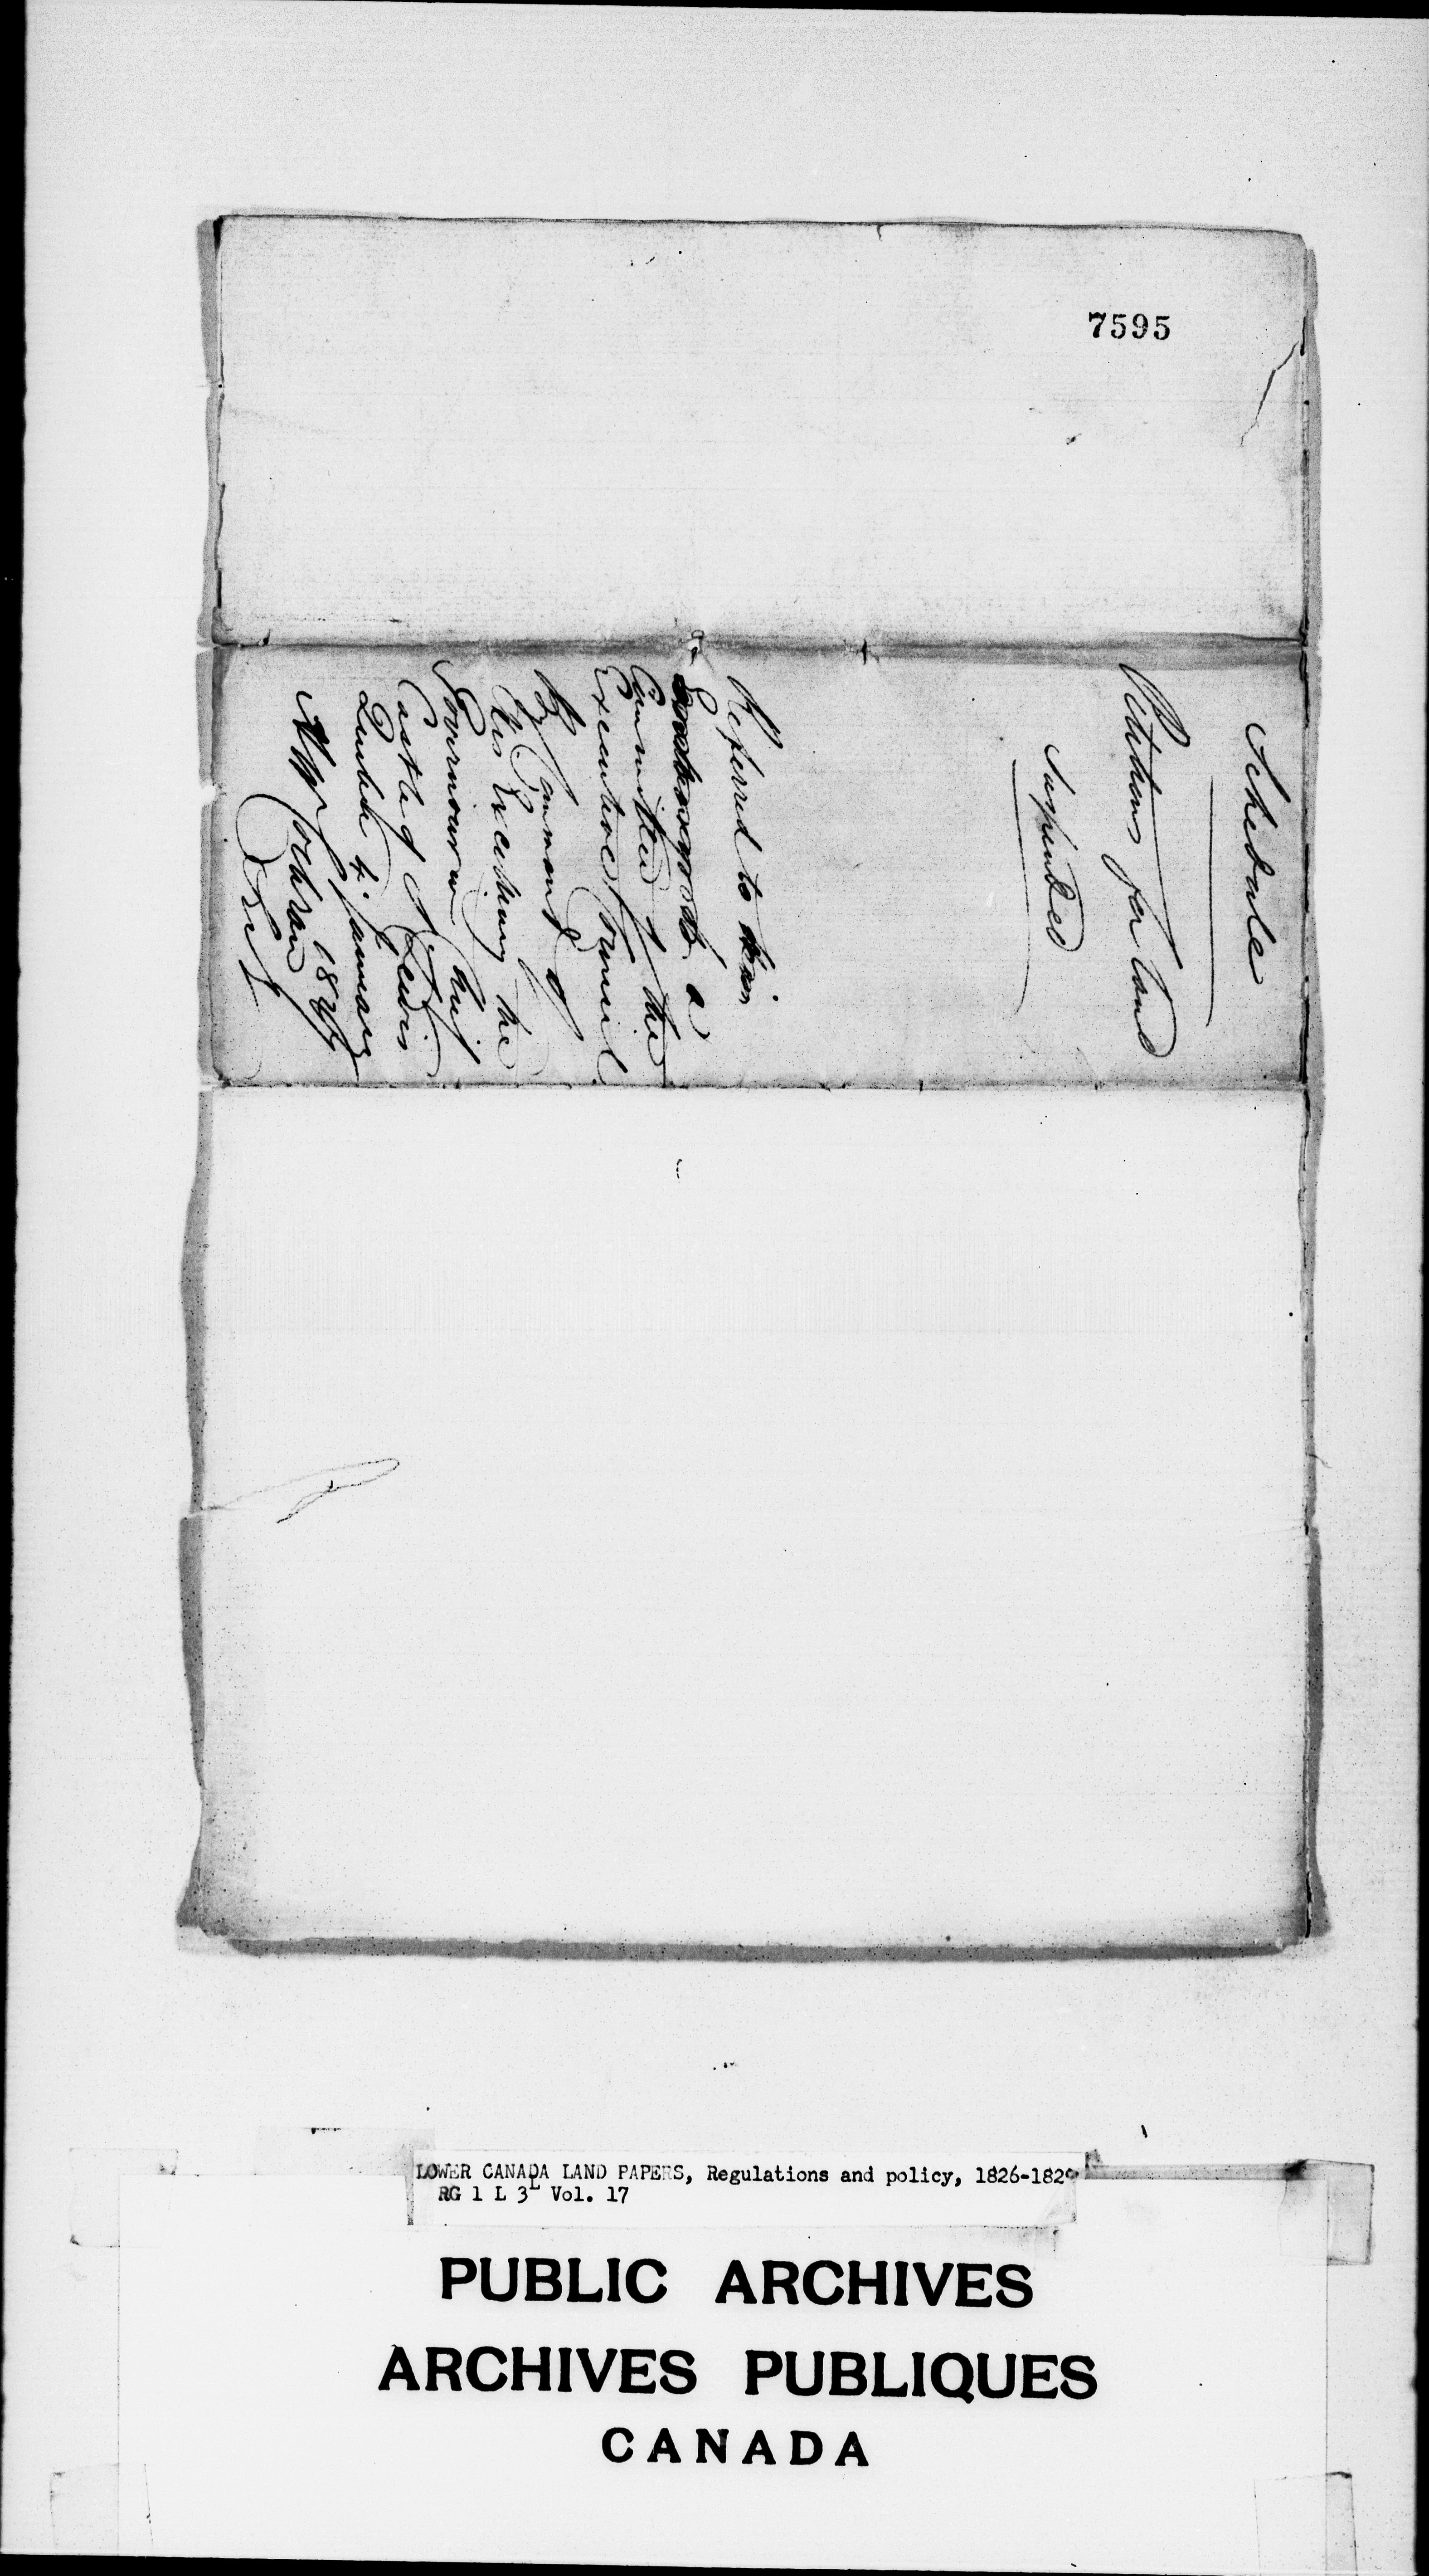 7595
Schedule
Petitions for land
Suspended
Referred to
a
Committee of the
Executive Council
By Command of
His Excellency the
Governour in Chief
Castle of St Lewis
Quebec 4. January
A W Cochran 182
Secy
LOWER CANADA LAND PAPERS, Regulations and policy, 1826-1829
RG 1 L 3L Vol. 17
PUBLIC ARCHIVES
ARCHIVES PUBLIQUES
CANADA